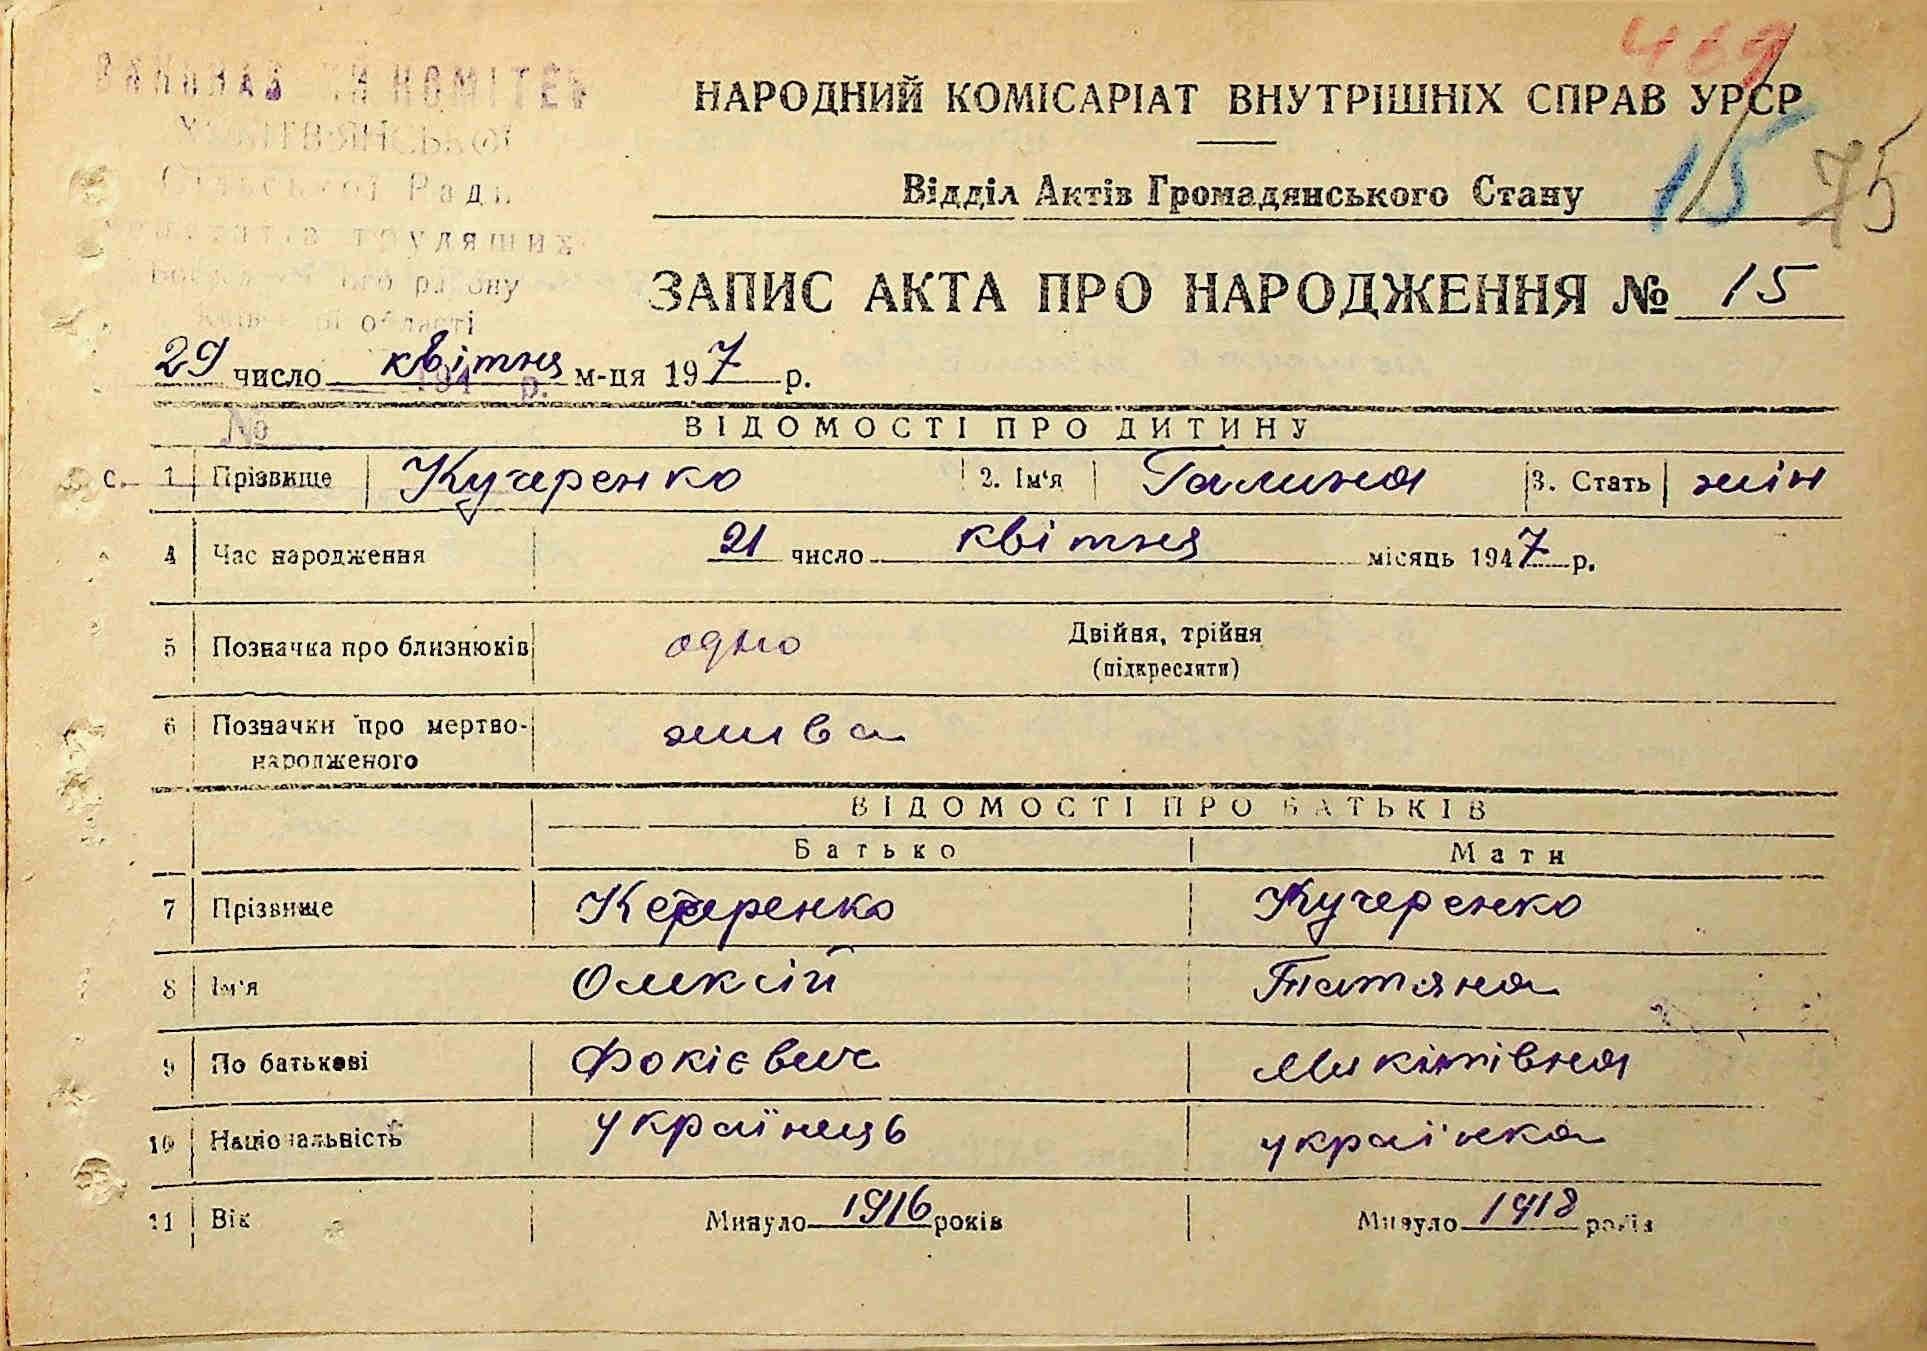 469
НАРОДНИЙ КОМІСАРІАТ ВНУТРІШНІХ СПРАВ УРСР
15 75
Відділ Актів Громадянського Стану
КОМІТЕТ
Сільської Ради
трудящих
району
області
194 р.
№
ЗАПИС АКТА ПРО НАРОДЖЕННЯ № 15
29 число квітня м-ця 197 р.
ВІДОМОСТІ ПРО ДИТИНУ
с. 1 Прізвище Кучеренко 2. Ім'я Галина 3. Стать жін
4 Час народження 21 число квітня місяць 1947 р.
5 Позначка про близнюків одно Двійня, трійня
(підкреслити)
6 Позначки про мертво-
народженого жива
ВІДОМОСТІ ПРО БАТЬКІВ
Батько Мати
7 Прізвище Кучеренко Кучеренко
8 Ім'я Олексій Татяна
9 По батькові Фокієвич Микитівна
10 Національність українець українка
11 Вік Минуло 1916 років Минуло 1918 років